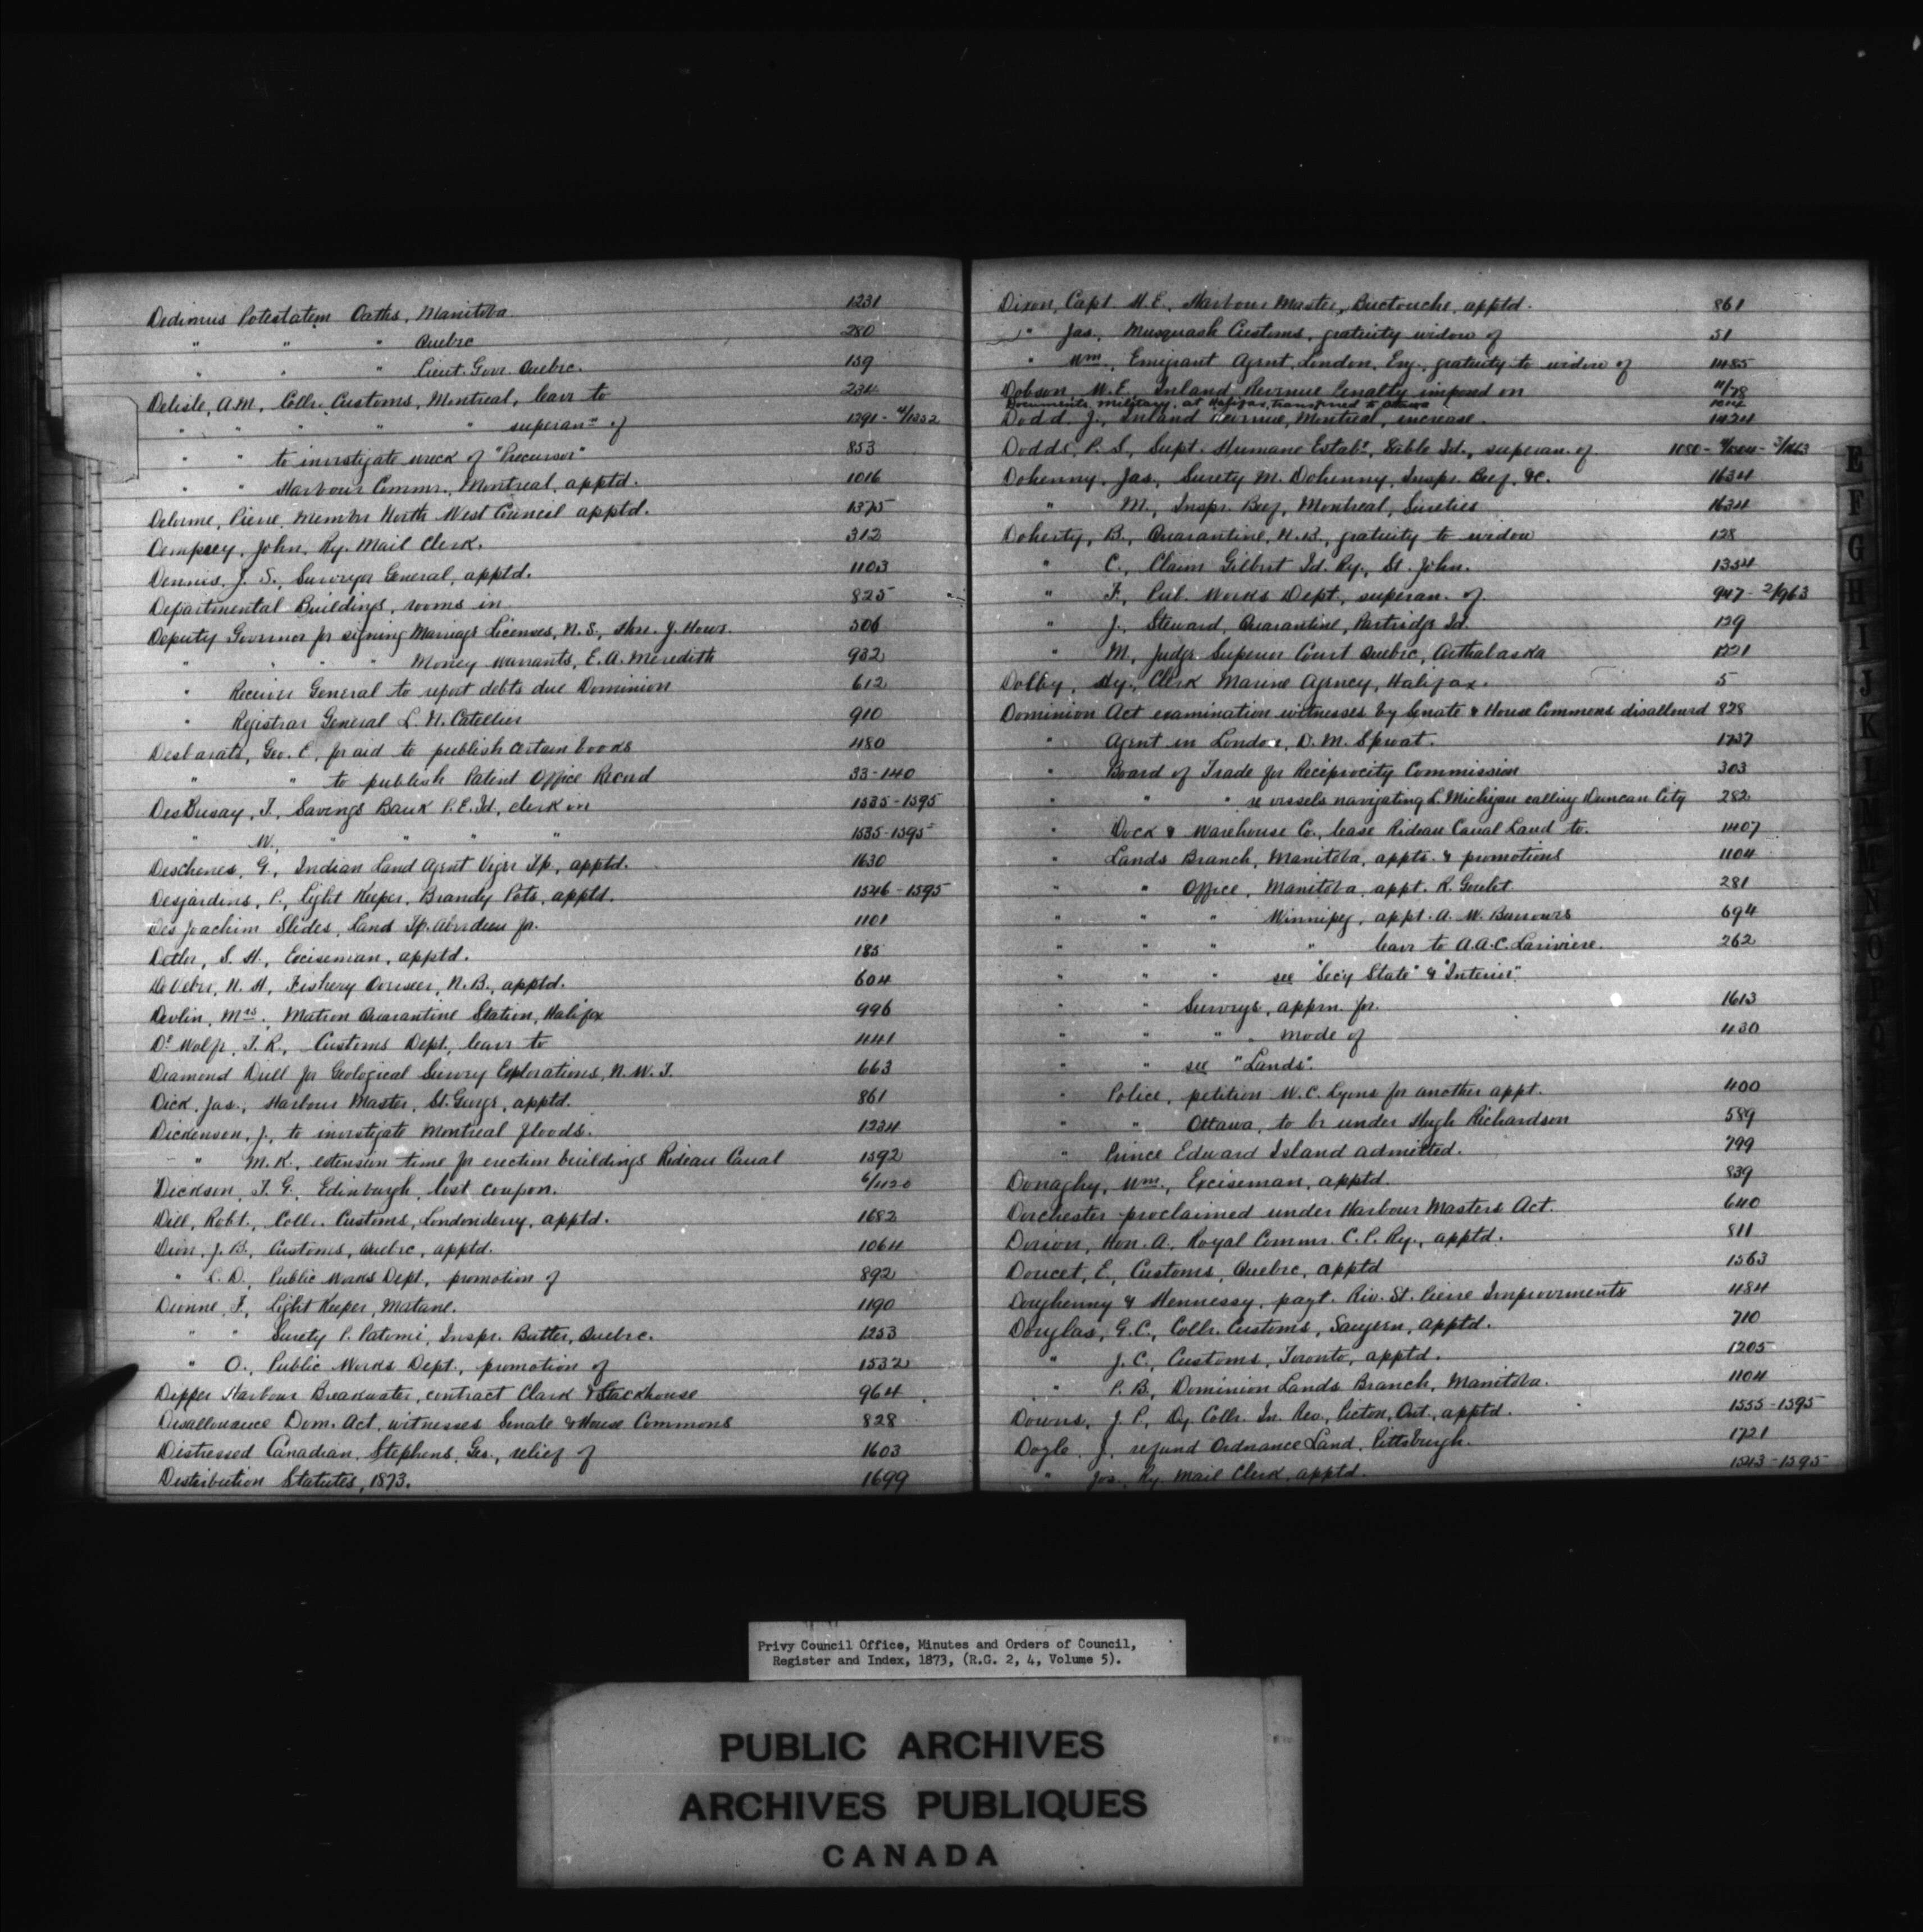 Dedimus Potestatem Oaths, Manitoba 1231
" " " Quebec 280
" " " Lieut. Govr. Quebec. 159
Delisle, A.M., Collr. Customs, Montreal, leave to 234
" " " " " superanⁿ of 1291 - 4/1352
" " to investigate wreck of "Precursor" 853
" " Harbour Commr., Montreal, apptd. 1016
Delorme, Pierre, Member North West Council apptd. 1375
Dempsey, John, Ry. Mail Clerk. 312
Dennis, J. S., Surveyor General, apptd. 1103
Departmental Buildings, rooms in 825
Deputy Governor for signing Marriage Licenses, N.S., Hon. J. Howe. 506
" " " " Money warrants, E. A. Meredith 932
" Receiver General to report debts due Dominion 612
" Registrar General L. N. Catellier 910
Desbarats, Geo. E, for aid to publish certain books 480
" " to publish Patent Office Record 33-140
DesBrisay, T., Savings Bank P.E.Id., clerk in 1535-1595
" W., " " " " 1535-1595
Deschenes, G., Indian Land Agent Viger Tp., apptd. 1630
Desjardins, P., Light Keeper, Brandy Pots, apptd. 1546-1595
Des Joachim Slides, Land Tp. Aberdeen for. 1101
Detlor, S. H., Exciseman, apptd. 185
DeVeber, N. H., Fishery Overseer, N.B., apptd. 604
Devlin, Mrs., Matron Quarantine Station, Halifax 996
De Wolfe, T. R., Customs Dept., leave to 441
Diamond Drill for Geological Survey Explorations, N.W.T. 663
Dick, Jas., Harbour Master, St. George, apptd. 861
Dickenson, J., to investigate Montreal floods. 1234
" M. K., extension time for erection buildings Rideau Canal 1592
Dickson, T. G., Edinburgh, lost coupon. 6/1120
Dill, Robt., Collr. Customs, Londonderry, apptd. 1682
Dion, J. B., Customs, Quebec, apptd. 1064
" C. D., Public Works Dept., promotion of 892
Dionne, F., Light Keeper, Matane. 1190
" " Surety P. Patomi, Inspr. Butter, Quebec. 1253
" O., Public Works Dept., promotion of 1532
Dipper Harbour Breakwater, contract Clark & Stackhouse 964
Disallowance Dom. Act, witnesses Senate & House Commons 828
Distressed Canadian, Stephens, Geo., relief of 1603
Distribution Statutes, 1873. 1699
Dixon, Capt. H. E., Harbour Master, Buctouche, apptd. 861
" Jas., Musquash Customs, gratuity widow of 51
" Wm., Emigrant Agent, London, Eng., gratuity to widow of 1485
Dobson W. E., Inland Revenue Penalty imposed on 11/78
Documents, military, at Halifax, transferred to Ottawa
Dodd, J., Inland Revenue, Montreal, increase. 1424
Dodds, P. S., Supt. Humane Estabt., Sable Id., superan. of
Dohenny, Jas., Surety M. Dohenny, Inspr. Beef, &c. 1634
" M., Inspr. Beef, Montreal, Sureties 1634
Doherty, B., Quarantine, N.B., gratuity to widow 128
" C., Claim Gilbert Id. Ry., St. John. 1354
" F., Pub. Works Dept., superan. of 947-2/963
" J., Steward, Quarantine, Partridge Id. 129
" M., Judge Superior Court Quebec, Arthabaska 1221
Dolby, Hy., Clerk Marine Agency, Halifax. 5
Dominion Act examination witnesses by Senate & House Commons disallowed 828
" Agent in London, D. M. Sproat. 1737
" Board of Trade for Reciprocity Commission 303
" " " re vessels navigating L. Michigan calling Duncan City 282
" Dock & Warehouse Co., lease Rideau Canal Land to. 1407
" Lands Branch, Manitoba, appts. & promotions 1104
" " Office, Manitoba, appt. R. Goulet 281
" " " Winnipeg, appt. A. W. Burrows 694
" " " " leave to A.A.C. Lariviere. 262
" " " see "Secy State" & "Interior"
" " Surveys, apprn. for. 1613
" " " mode of 430
" " see "Lands".
" Police, petition W. C. Lyons for another appt. 400
" " Ottawa, to be under Hugh Richardson 589
" Prince Edward Island admitted. 799
Donaghy, Wm., Exciseman, apptd. 839
Dorchester proclaimed under Harbour Masters Act. 640
Dorion, Hon. A., Royal Commr. C.P. Ry., apptd. 811
Doucet, E., Customs, Quebec, apptd 1563
Dougherty & Hennessy, payt. Riv. St. Pierre Improvements 1184
Douglas, G. C., Collr. Customs, Saugeen, apptd. 710
" J. C., Customs, Toronto, apptd. 1205
" P. B., Dominion Lands Branch, Manitoba. 1104
Downs, J. P., Dy. Collr. In. Rev., Picton, Ont., apptd. 1555-1595
Doyle, J., refund Ordnance Land, Pittsburgh. 1721
" Jos., Ry. Mail Clerk, apptd. 1543-1595
E
F
G
H
I
J
K
Privy Council Office, Minutes and Orders of Council,
Register and Index, 1873, (R.G. 2, 4, Volume 5).
PUBLIC ARCHIVES
ARCHIVES PUBLIQUES
CANADA